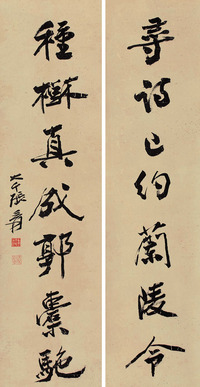 尋詩已約蘭陵令
種樹真成郭橐駝
大千張爰